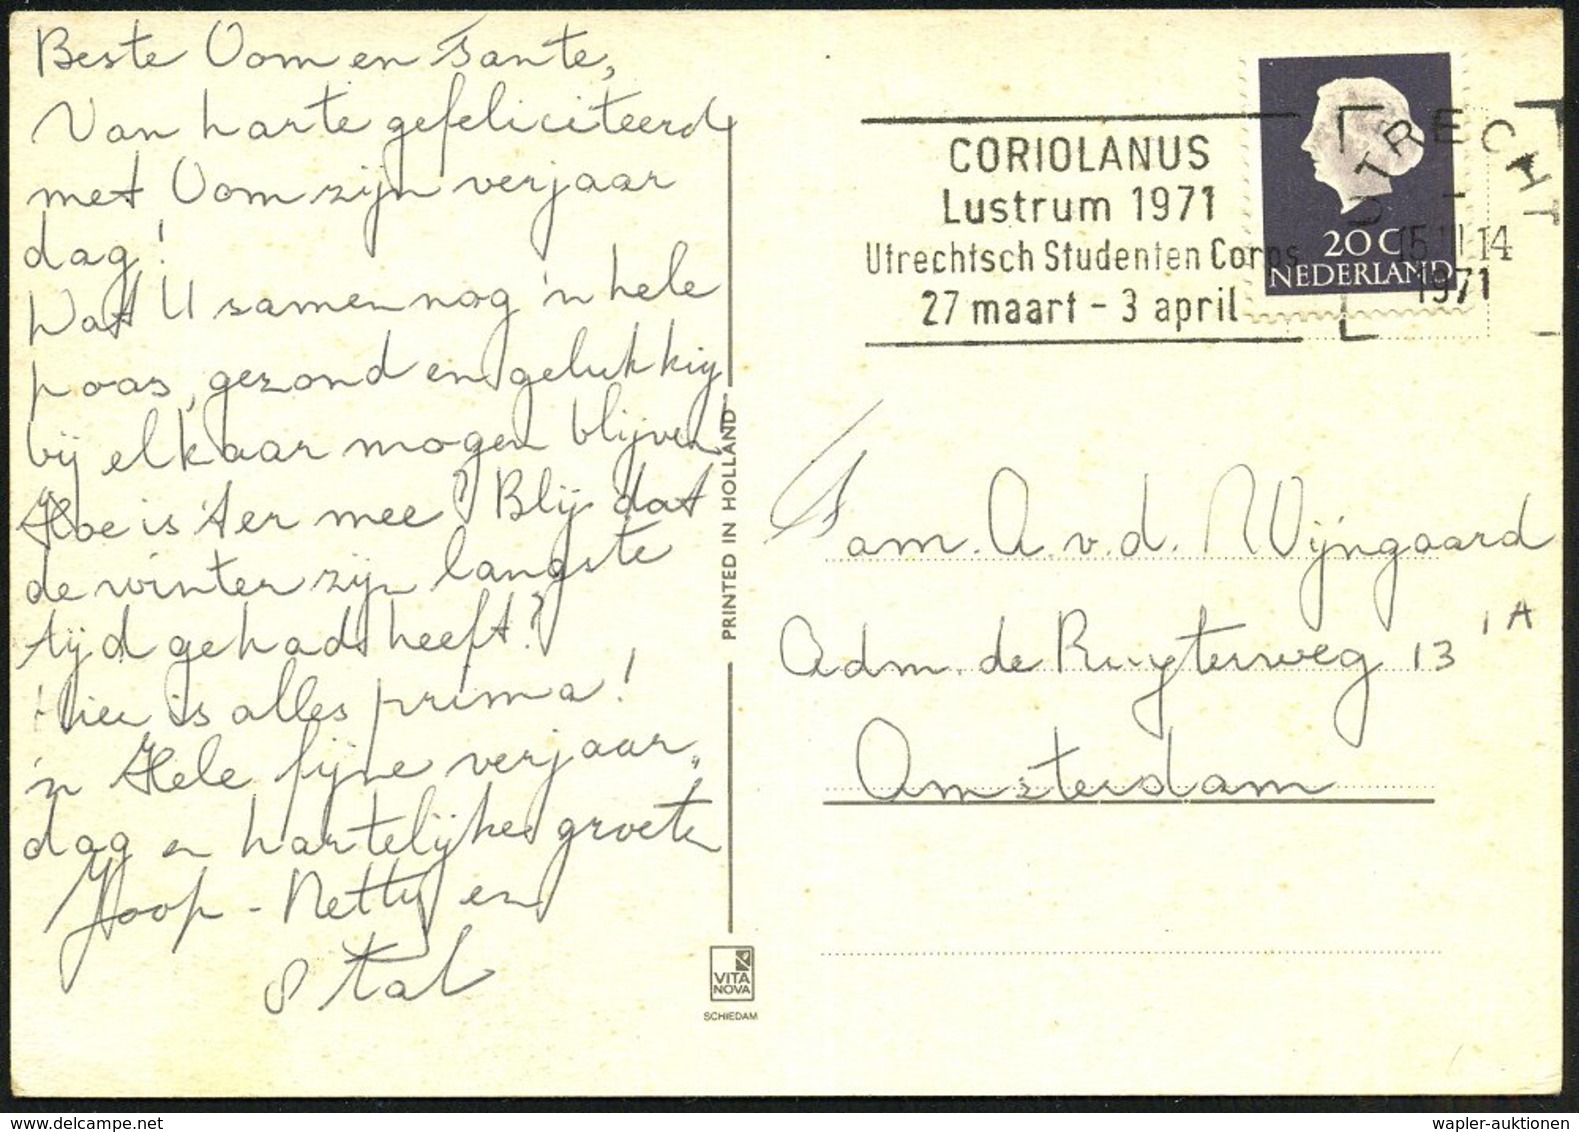 Beste Oom en Tante,
Van harte gefeliciteerd
met Oom zijn verjaar
dag!
Wat U samen nog 'n hele
poos, gezond en gelukkig
bij elkaar mogen blijven
Hoe is 't er mee? Blij dat
de winter zijn langste
tijd gehad heeft?
Hier is alles prima!
'n Hele fijne verjaar„
dag en hartelijke groeten
Joop - Netty en
Stal
PRINTED IN HOLLAND
VITA
NOVA
SCHIEDAM
CORIOLANUS
Lustrum 1971
Utrechtsch Studenten Corps
27 maart - 3 april
UTRECHT
14
1971
20 C
NEDERLAND
Fam. A. v. d. Wijngaard
Adm. de Ruyterweg 13 1A
Amsterdam
wapler-auktionen